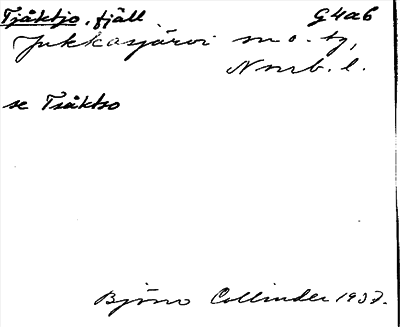 Tjåktjo, fjäll G4a6
Jukkasjärvi sn o. tg,
Nrrb. l.
se Tsåktso
Björn Collinder 1937.